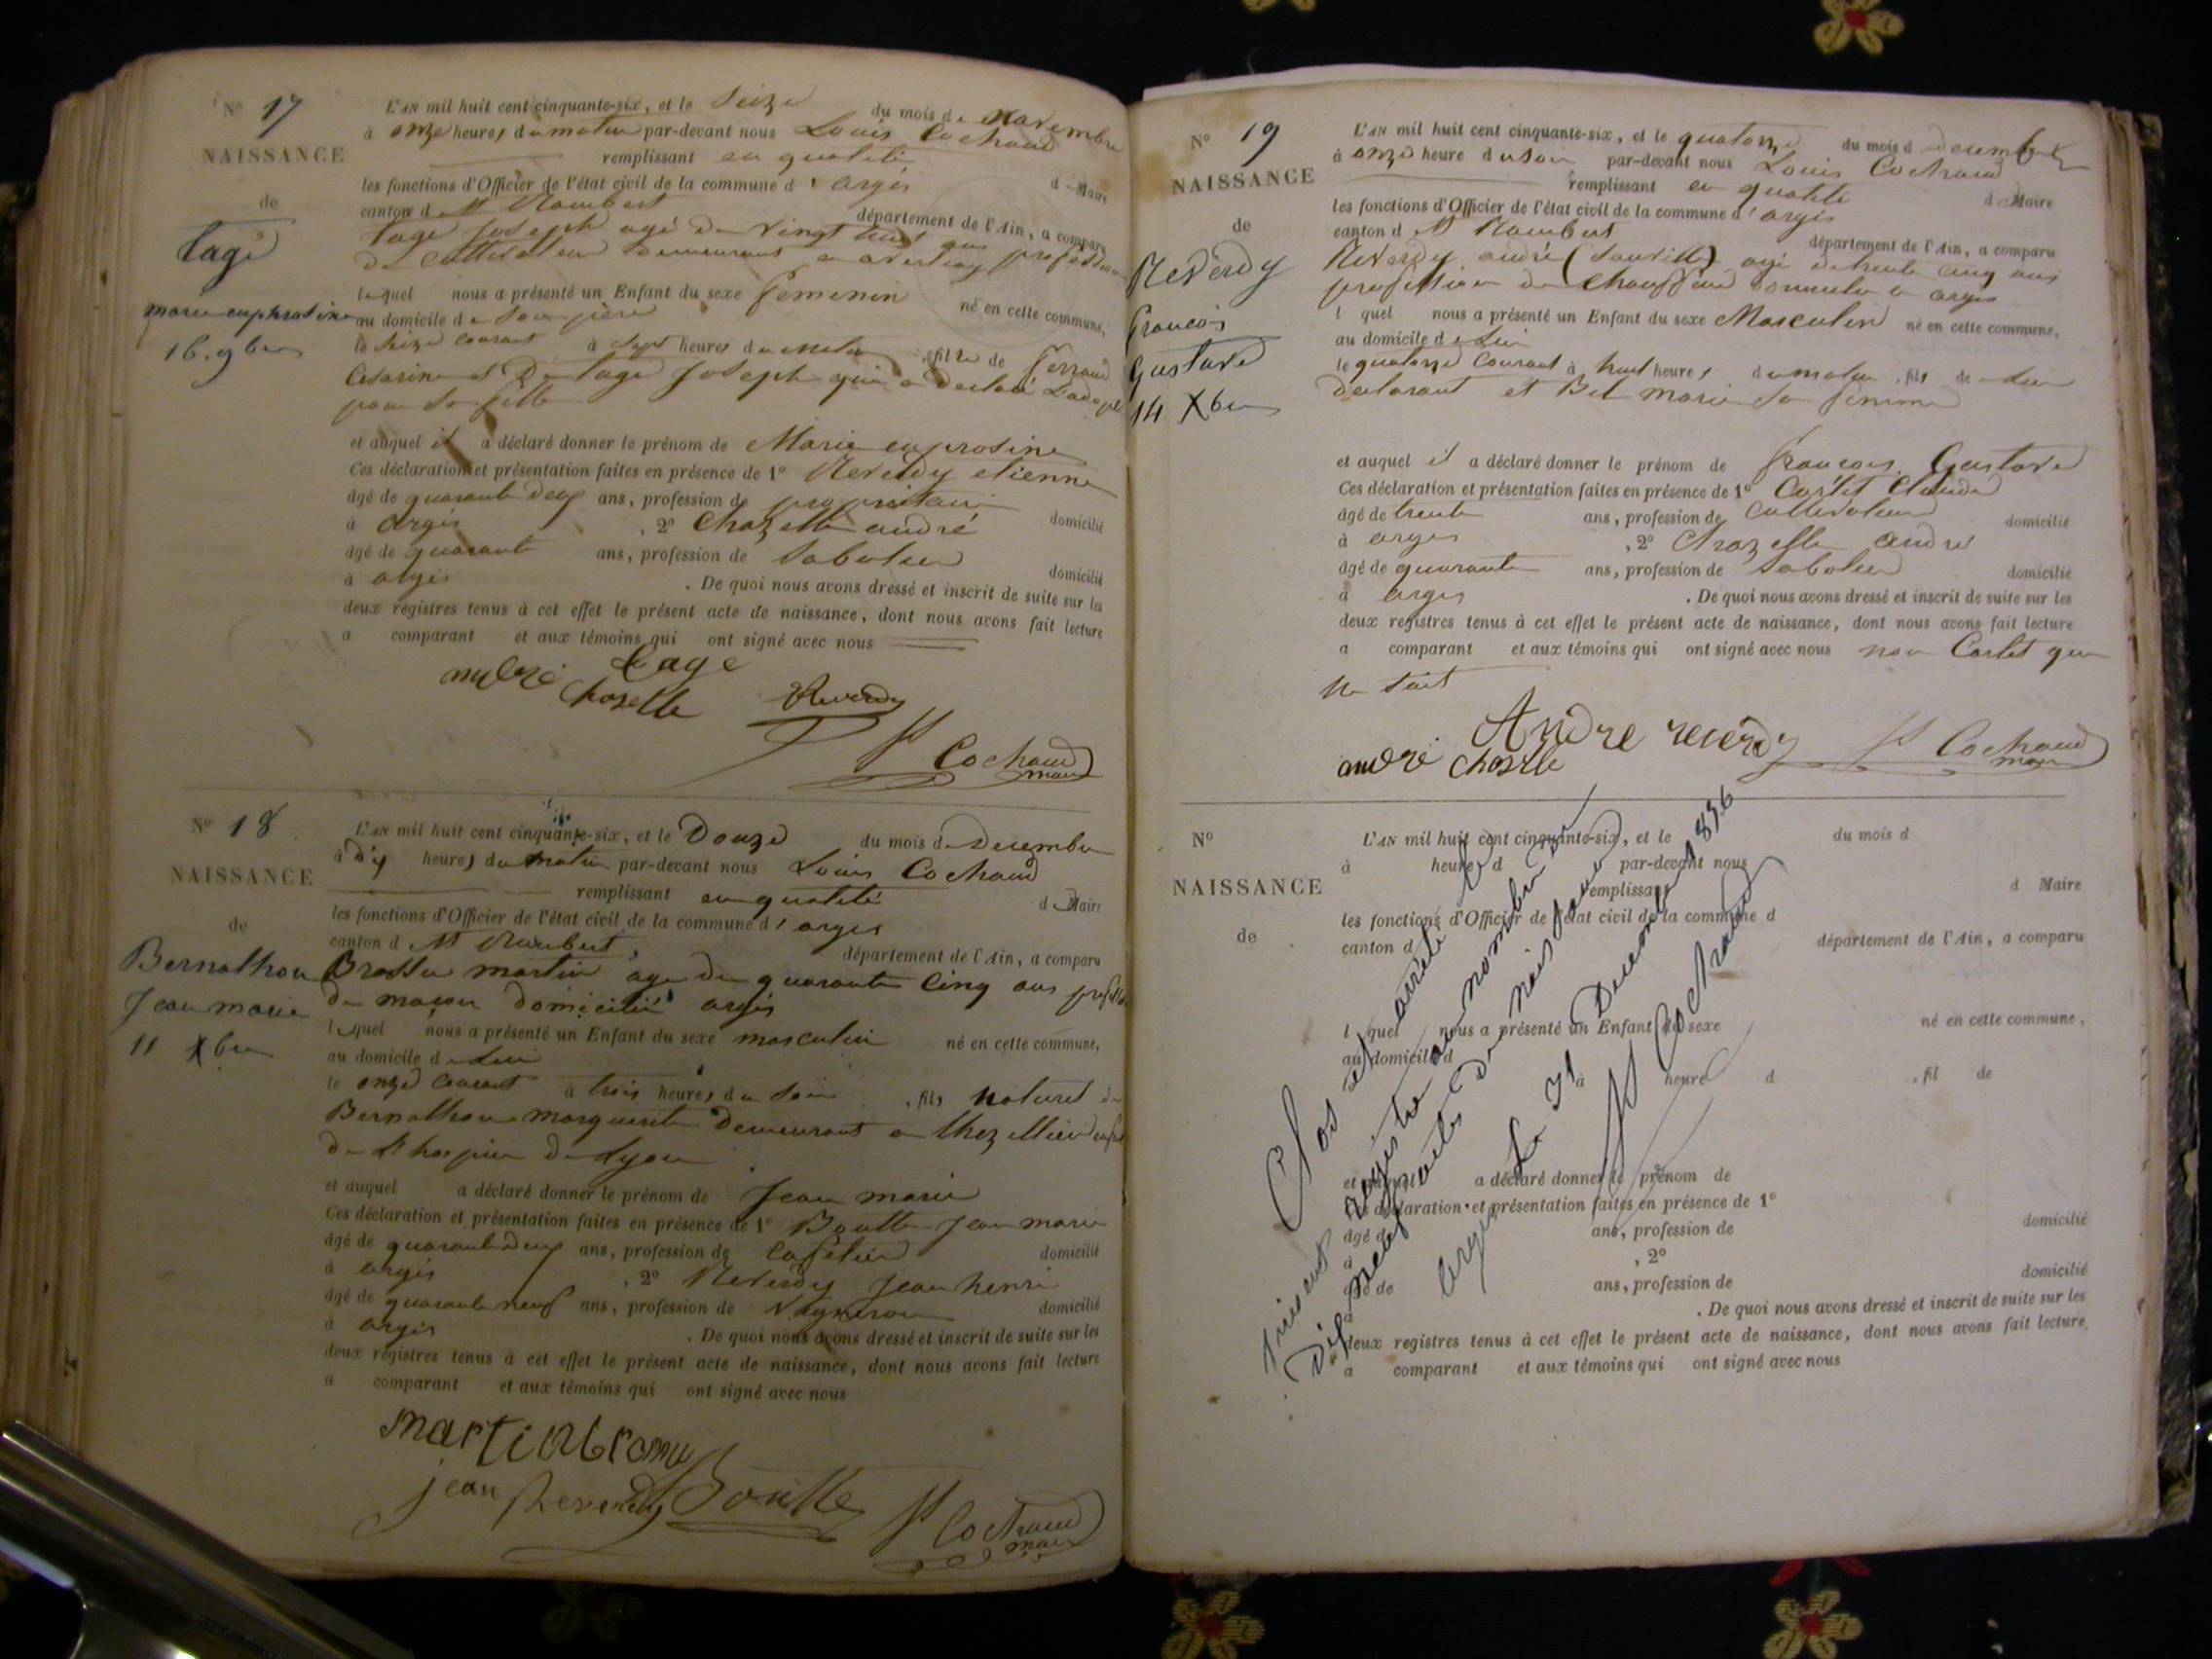 N° 17
NAISSANCE
de
Lage
marie euphrosine
16. 9bre
L'AN mil huit cent cinquante-six, et le Seize du mois de Novembre
à onze heures du matin par-devant nous Louis Cochaud
remplissant en qualité d Maire
les fonctions d'Officier de l'état civil de la commune d' argis
canton d St Rambert département de l'Ain, a comparu
Lage Joseph agé de vingt huit ans profession
de Cultivateur demeurant a
lequel nous a présenté un Enfant du sexe feminin né en cette commune,
au domicile de son père
le Seize courant à Sept heures du matin , fille de Ferrand
Cesarine et De Lage Joseph qui a declaré
pour sa fille
et auquel il a déclaré donner le prénom de Marie euprosine
Ces déclaration et présentation faites en présence de 1° Reverdy etienne
âgé de quarante deux ans, profession de propriétaire domicilié
à argis , 2° Chazelle andré
âgé de quarante ans, profession de Sabotier domicilié
à argis . De quoi nous avons dressé et inscrit de suite sur les
deux registres tenus à cet effet le présent acte de naissance, dont nous avons fait lecture
a comparant et aux témoins qui ont signé avec nous
andré Lage
Chazelle Reverdy
Ls Cochaud
maire
N° 18
NAISSANCE
de
Bernathon
Jean marie
11 Xbre
L'AN mil huit cent cinquante-six, et le Douze du mois de Decembre
à dix heures du matin par-devant nous Louis Cochaud
remplissant en qualité d Maire
les fonctions d'Officier de l'état civil de la commune d' argis
canton d St Rambert département de l'Ain, a comparu
martin age de quarante cinq ans
de maçon domicilié argis
lequel nous a présenté un Enfant du sexe masculin né en cette commune,
au domicile de Lui
le onze courant à trois heures du Soir , fils naturel de
Bernathon marguerite Demeurant a
de L'hospice de Lyon
et auquel a déclaré donner le prénom de Jean marie
Ces déclaration et présentation faites en présence de 1° Boutte Jean marie
âgé de quarante deux ans, profession de cafetier domicilié
à argis , 2° Reverdy Jean henri
âgé de quarante neuf ans, profession de Vigneron domicilié
à argis . De quoi nous avons dressé et inscrit de suite sur les
deux registres tenus à cet effet le présent acte de naissance, dont nous avons fait lecture
a comparant et aux témoins qui ont signé avec nous
martin
jean Reverdy Boutte
Ls Cochaud
maire
N° 19
NAISSANCE
de
Reverdy
francois
Gustave
14 Xbre
L'AN mil huit cent cinquante-six, et le quatorze du mois d decembre
à onze heure du soir par-devant nous Louis Cochaud
remplissant en qualité d Maire
les fonctions d'Officier de l'état civil de la commune d' argis
canton d St Rambert département de l'Ain, a comparu
Reverdy andré agé de trente cinq ans
profession de Chauffeur a argis
l quel nous a présenté un Enfant du sexe Masculin né en cette commune,
au domicile de Lui
le quatorze courant à huit heures du matin , fils de Lui
declarant et Bel marie sa femme
et auquel il a déclaré donner le prénom de francois Gustave
Ces déclaration et présentation faites en présence de 1° Carlet Claude
âgé de trente ans, profession de Cultivateur domicilié
à argis , 2° Chazelle andré
âgé de quarante ans, profession de Sabotier domicilié
à argis . De quoi nous avons dressé et inscrit de suite sur les
deux registres tenus à cet effet le présent acte de naissance, dont nous avons fait lecture
a comparant et aux témoins qui ont signé avec nous non Carlet qui
ne sait
Andre reverdy
andré Chazelle
Ls Cochaud
maire
N°
NAISSANCE
de
L'AN mil huit cent cinquante-six, et le du mois d
à heure d par-devant nous
remplissant d Maire
les fonctions d'Officier de l'état civil de la commune d
canton d département de l'Ain, a comparu
l quel nous a présenté un Enfant du sexe né en cette commune,
au domicile d
le à heure d , fil de
et auquel a déclaré donner le prénom de
Ces déclaration et présentation faites en présence de 1°
âgé de ans, profession de domicilié
à , 2°
âgé de ans, profession de domicilié
à . De quoi nous avons dressé et inscrit de suite sur les
deux registres tenus à cet effet le présent acte de naissance, dont nous avons fait lecture
a comparant et aux témoins qui ont signé avec nous
Clos et arrêté le
présent registre au nombre de
Dix neuf actes de naissance
argis Le 31 Decembre 1856
Ls Cochaud